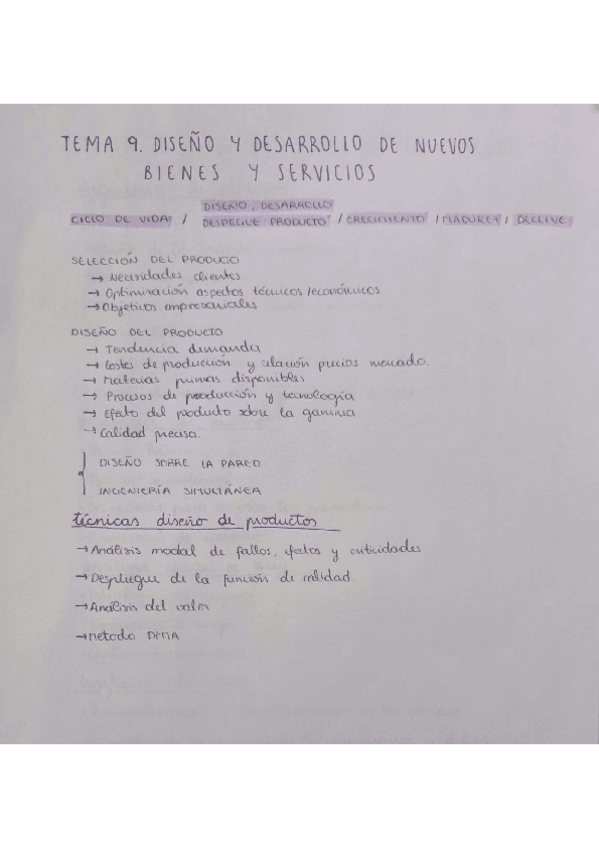 TEMA 9. DISEÑO Y DESARROLLO DE NUEVOS
BIENES Y SERVICIOS
DISEÑO, DESARROLLO
CICLO DE VIDA / DESPEGUE PRODUCTO / CRECIMIENTO / MADUREZ / DECLIVE
SELECCIÓN DEL PRODUCTO
→ Necesidades clientes
→ Optimización aspectos técnicos/económicos
→ Objetivos empresariales
DISEÑO DEL PRODUCTO
→ Tendencia demanda
→ Costes de producción y relación precios mercado.
→ Materias primas disponibles
→ Procesos de producción y tecnología
→ Efecto del producto sobre la gama
→ Calidad precisa.
DISEÑO SOBRE LA PARED
INGENIERÍA SIMULTÁNEA
técnicas diseño de productos
→ Análisis modal de fallos, efectos y criticidades
→ Despliegue de la función de calidad.
→ Análisis del valor
→ metodo DFMA